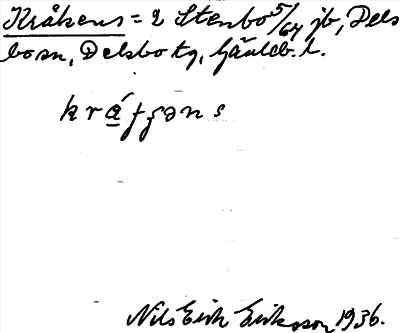 Kråkens = 2 Stenbo 5/64 jb, Dels
bosn, Delsbo tg, Gävleb. l.
Nils Erik Eriksson 1936.